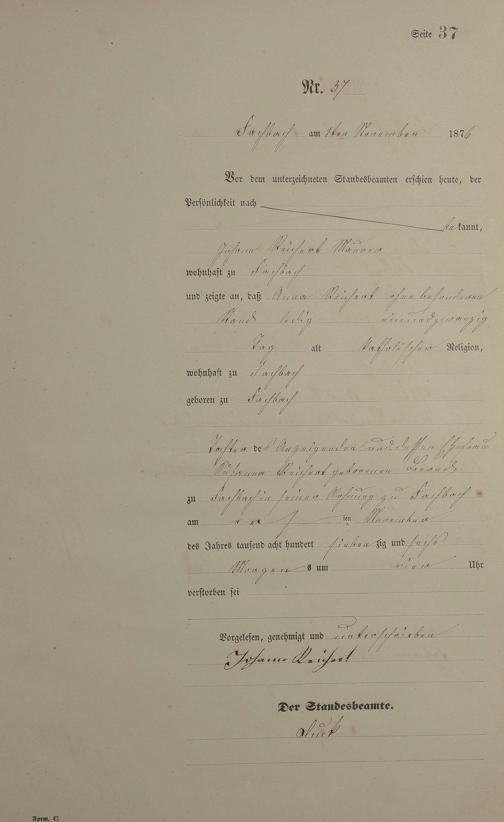 Seite 37
Nr. 37
Fachbach am 1ten November 1876
Vor dem unterzeichneten Standesbeamten erschien heute, der
Persönlichkeit nach
bekannt,
Johann Reichert Maurer
wohnhaft zu Fachbach
und zeigte an, daß Anna Reichert ohne besonderen
Stand ledig einundzwanzig
Tag alt katholischer Religion,
wohnhaft zu Fachbach
geboren zu Fachbach
Tochter des Anzeigenden und dessen Ehefrau
Susanna Reichert geborenen
zu Fachbach in seiner Wohnung zu Fachbach
am ten November
des Jahres tausend acht hundert siebenzig und sechs
Morgens um vier Uhr
verstorben sei
Vorgelesen, genehmigt und unterschrieben
Johann Reichert
Der Standesbeamte.
Form. C.